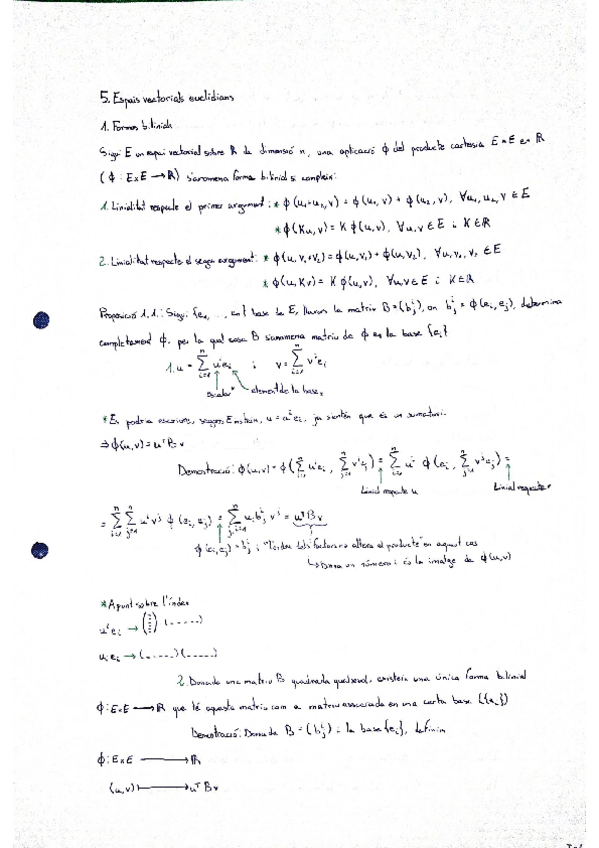 5. Espais vectorials euclidians
1. Formes bilinials
Sigui E un espai vectorial sobre ℝ de dimensió n, una aplicació ϕ del producte cartesià E×E en ℝ
(ϕ: E×E → ℝ) s'anomena forma bilinial si compleix:
1. Linialitat respecte el primer argument: * ϕ(u₁+u₂, v) = ϕ(u₁, v) + ϕ(u₂, v), ∀u₁, u₂, v ∈ E
* ϕ(Ku, v) = K ϕ(u, v), ∀u, v ∈ E i K∈ℝ
2. Linialitat respecte el segon argument: * ϕ(u, v₁+v₂) = ϕ(u, v₁) + ϕ(u, v₂), ∀u, v₁, v₂ ∈ E
* ϕ(u, Kv) = K ϕ(u, v), ∀u, v ∈ E i K∈ℝ
Proposició 1.1.: Sigui {e₁, ..., eₙ} base de E, llavors la matriu B=(bⁱⱼ), on bⁱⱼ = ϕ(eᵢ, eⱼ), determina
completament ϕ, per la qual cosa B s'anomena matriu de ϕ en la base {eᵢ}
1. u = Σⁿᵢ₌₁ uⁱeᵢ i v = Σⁿᵢ₌₁ vⁱeᵢ
escalar element de la base
* Es podria escriure, segons Einstein, u = uⁱeᵢ, ja s'entén que és un sumatori.
⇒ ϕ(u, v) = uᵀ B v
Demostració: ϕ(u, v) = ϕ(Σⁿᵢ₌₁ uⁱeᵢ, Σⁿⱼ₌₁ vʲeⱼ) = Σⁿᵢ₌₁ uⁱ ϕ(eᵢ, Σⁿⱼ₌₁ vʲeⱼ) =
Linial respecte u Linial respecte v
= Σⁿᵢ₌₁ Σⁿⱼ₌₁ uⁱ vʲ ϕ(eᵢ, eⱼ) = Σⁿᵢ,ⱼ₌₁ uᵢ bⁱⱼ vʲ = uᵀ B v
ϕ(eᵢ, eⱼ) = bⁱⱼ i "l'ordre dels factors no altera el producte" en aquest cas
↳ Dona un número i és la imatge de ϕ(u, v)
* Apunt sobre l'índex
uⁱeᵢ → (⋮) (- - - - -)
uᵢeᵢ → (- - - - -)(- - - - -)
2. Donada una matriu B quadrada qualsevol, existeix una única forma bilinial
ϕ: E×E → ℝ que té aquesta matriu com a matriu associada en una certa base ({eᵢ})
Demostració: Donada B = (bⁱⱼ) i la base {eᵢ}, definim
ϕ: E×E → ℝ
(u, v) ↦ uᵀ B v